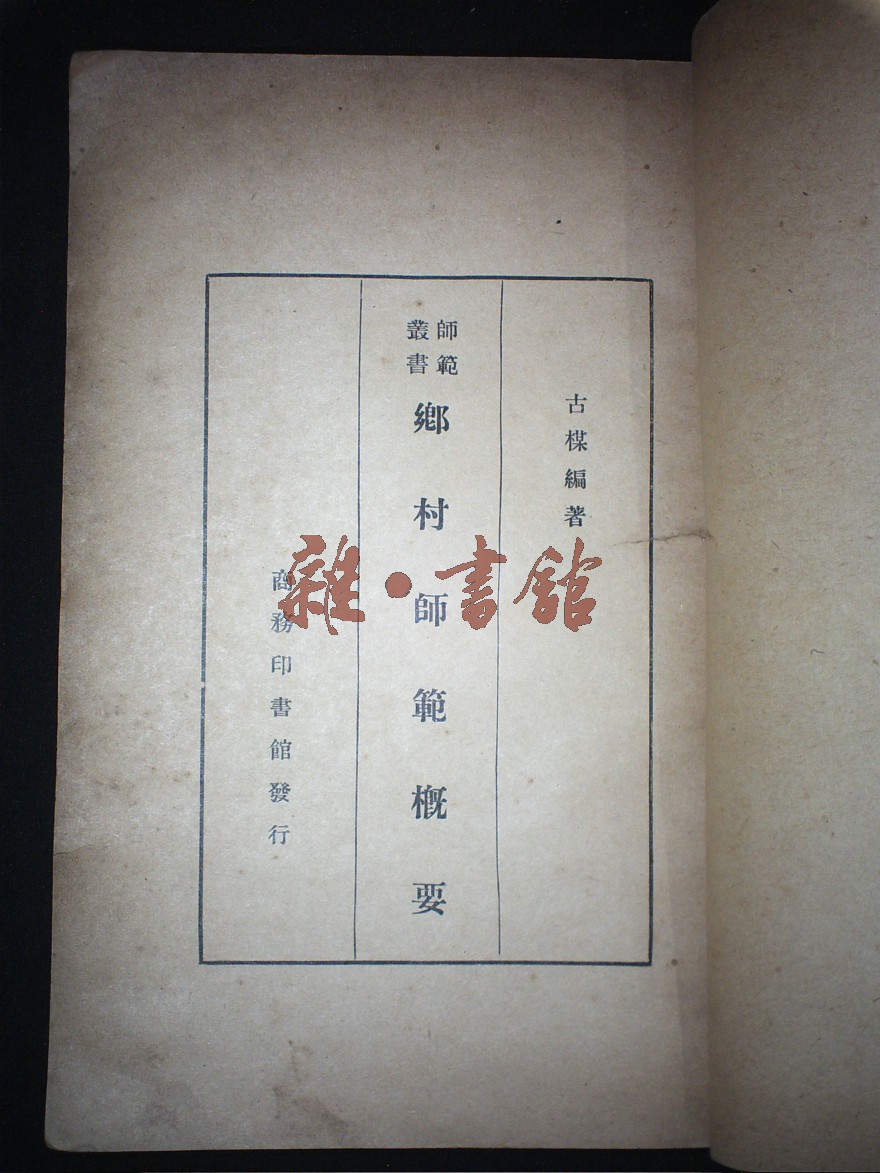 古楳編著
師範
叢書
鄉村師範概要
商務印書館發行
雜·書館